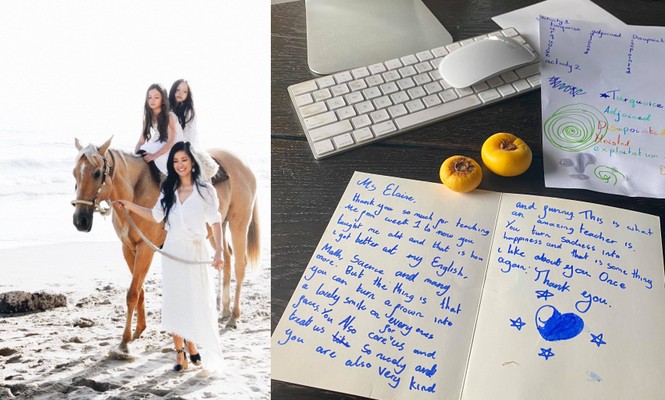 Ms Elaine,
thank you so much for teaching
me you week I 
bought me alt and that is how
i got better at my English.
Math, Science and many
more. But the thing is that
you can turn a frown into
a lovely smile on every ones
faces. You Also care us and for
treat us so nicely and
you are also very kind
and funny This is what
an amazing teacher is.
You turn sadness into
happiness and that is something
i like about you Once
again. Thank you.
activity 1
adjoined
activity 2
Turquoise
Adjoined